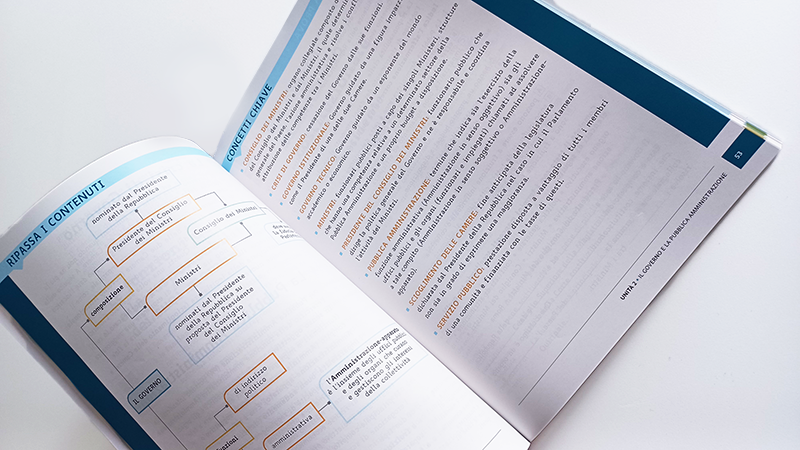 RIPASSA I CONTENUTI
nominato dal Presidente
della Repubblica
Presidente del Consiglio
dei Ministri
Consiglio dei Ministri
composizione
Ministri
nominati dal Presidente
della Repubblica su
proposta del Presidente
del Consiglio
dei Ministri
IL GOVERNO
di indirizzo
politico
amministrativa
l'Amministrazione-apparato
è l'insieme degli uffici pubblici
e degli organi che curano
e gestiscono gli interessi
della collettività
CONCETTI CHIAVE
CONSIGLIO DEI MINISTRI: organo collegiale composto
del Consiglio dei Ministri e dai Ministri, il quale determina
generale del Paese, l'azione amministrativa e risolve i conflitti
attribuzione delle competenze tra i Ministri.
CRISI DI GOVERNO: cessazione del Governo dalle sue funzioni.
GOVERNO ISTITUZIONALE: Governo guidato da una figura imparziale
come il Presidente di una delle due Camere.
GOVERNO TECNICO: Governo guidato da un esponente del mondo
accademico o economico.
MINISTRI: funzionari pubblici posti a capo dei singoli Ministeri, strutture
che hanno una competenza relativa a un determinato settore della
Pubblica Amministrazione e un proprio budget a disposizione.
PRESIDENTE DEL CONSIGLIO DEI MINISTRI: funzionario pubblico che
dirige la politica generale del Governo e ne è responsabile e coordina
l'attività dei Ministri.
PUBBLICA AMMINISTRAZIONE: termine che indica sia l'esercizio della
funzione amministrativa (Amministrazione in senso oggettivo) sia gli
uffici pubblici e gli organi (funzionari e impiegati) chiamati ad assolvere
a tale compito (Amministrazione in senso soggettivo o Amministrazione-
apparato).
SCIOGLIMENTO DELLE CAMERE: fine anticipata della legislatura
dichiarata dal Presidente della Repubblica nel caso in cui il Parlamento
non sia in grado di esprimere una maggioranza.
SERVIZIO PUBBLICO: prestazione disposta a vantaggio di tutti i membri
di una comunità e finanziata con le tasse di questi.
UNITÀ 2 • IL GOVERNO E LA PUBBLICA AMMINISTRAZIONE
53